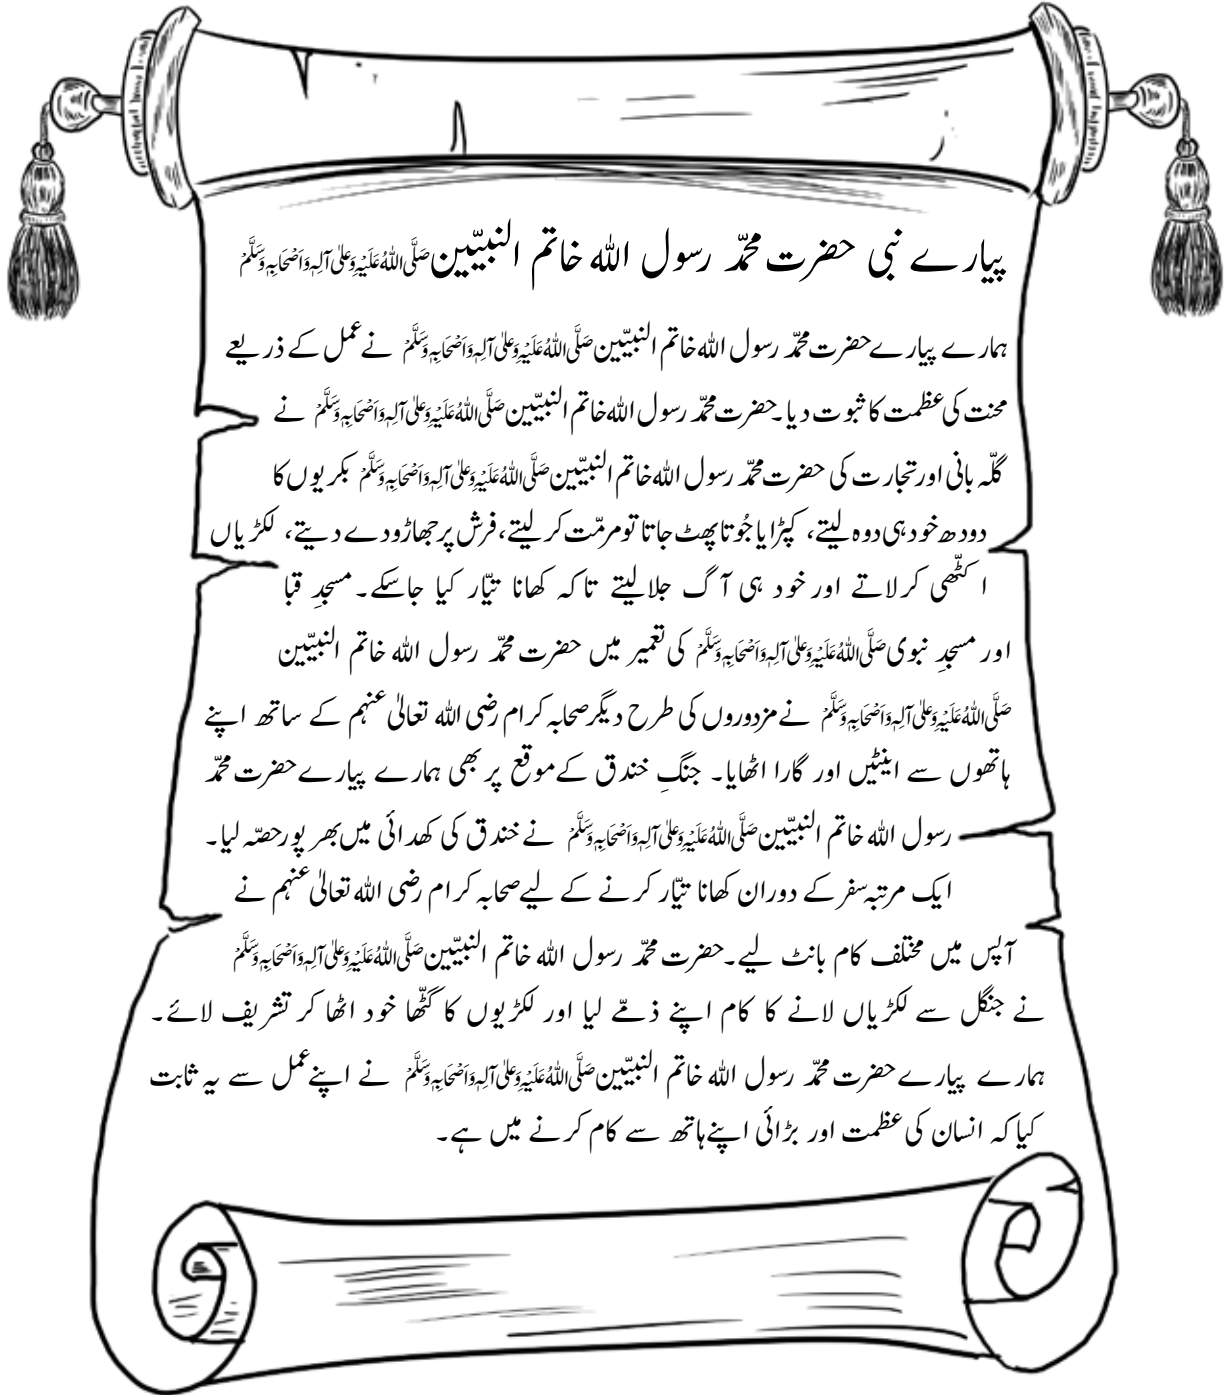 پیارے نبی حضرت محمّد رسول اللہ خاتم النبیّین صَلَّی اللہُ عَلَیْہِ وَعَلٰی آلِہٖ وَاَصْحَابِہٖ وَسَلَّمَ
ہمارے پیارے حضرت محمّد رسول اللہ خاتم النبیّین صَلَّی اللہُ عَلَیْہِ وَعَلٰی آلِہٖ وَاَصْحَابِہٖ وَسَلَّمَ نے عمل کے ذریعے
محنت کی عظمت کا ثبوت دیا۔ حضرت محمّد رسول اللہ خاتم النبیّین صَلَّی اللہُ عَلَیْہِ وَعَلٰی آلِہٖ وَاَصْحَابِہٖ وَسَلَّمَ نے
گلّہ بانی اور تجارت کی حضرت محمّد رسول اللہ خاتم النبیّین صَلَّی اللہُ عَلَیْہِ وَعَلٰی آلِہٖ وَاَصْحَابِہٖ وَسَلَّمَ بکریوں کا
دودھ خود ہی دوہ لیتے، کپڑا یا جُوتا پھٹ جاتا تو مرمّت کر لیتے، فرش پر جھاڑو دے دیتے، لکڑیاں
اکٹّھی کر لاتے اور خود ہی آگ جلا لیتے تاکہ کھانا تیّار کیا جاسکے۔ مسجدِ قبا
اور مسجدِ نبوی صَلَّی اللہُ عَلَیْہِ وَعَلٰی آلِہٖ وَاَصْحَابِہٖ وَسَلَّمَ کی تعمیر میں حضرت محمّد رسول اللہ خاتم النبیّین
صَلَّی اللہُ عَلَیْہِ وَعَلٰی آلِہٖ وَاَصْحَابِہٖ وَسَلَّمَ نے مزدوروں کی طرح دیگر صحابہ کرام رضی اللہ تعالیٰ عنہم کے ساتھ اپنے
ہاتھوں سے اینٹیں اور گارا اٹھایا۔ جنگِ خندق کے موقع پر بھی ہمارے پیارے حضرت محمّد
رسول اللہ خاتم النبیّین صَلَّی اللہُ عَلَیْہِ وَعَلٰی آلِہٖ وَاَصْحَابِہٖ وَسَلَّمَ نے خندق کی کھدائی میں بھر پور حصّہ لیا۔
ایک مرتبہ سفر کے دوران کھانا تیّار کرنے کے لیے صحابہ کرام رضی اللہ تعالیٰ عنہم نے
آپس میں مختلف کام بانٹ لیے۔ حضرت محمّد رسول اللہ خاتم النبیّین صَلَّی اللہُ عَلَیْہِ وَعَلٰی آلِہٖ وَاَصْحَابِہٖ وَسَلَّمَ
نے جنگل سے لکڑیاں لانے کا کام اپنے ذمّے لیا اور لکڑیوں کا گٹّھا خود اٹھا کر تشریف لائے۔
ہمارے پیارے حضرت محمّد رسول اللہ خاتم النبیّین صَلَّی اللہُ عَلَیْہِ وَعَلٰی آلِہٖ وَاَصْحَابِہٖ وَسَلَّمَ نے اپنے عمل سے یہ ثابت
کیا کہ انسان کی عظمت اور بڑائی اپنے ہاتھ سے کام کرنے میں ہے۔